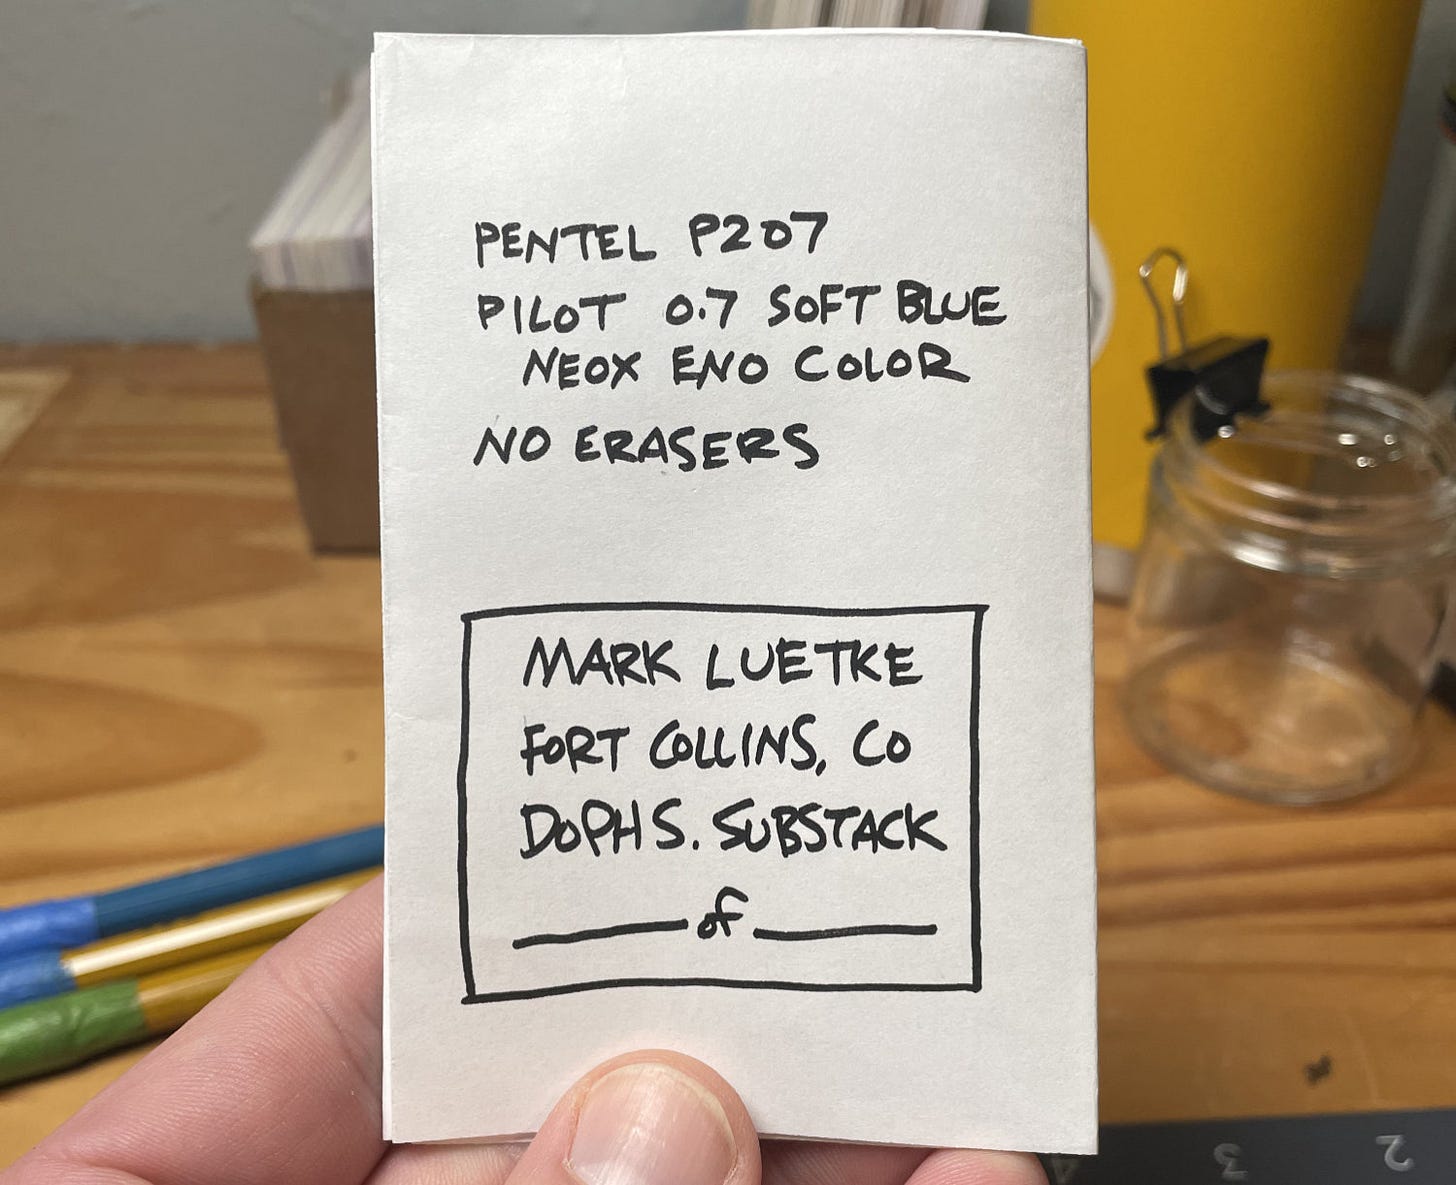 PENTEL P207
PILOT 0.7 SOFT BLUE
NEOX ENO COLOR
NO ERASERS
MARK LUETKE
FORT COLLINS, CO
DOPHS. SUBSTACK
____ of ____
3 2